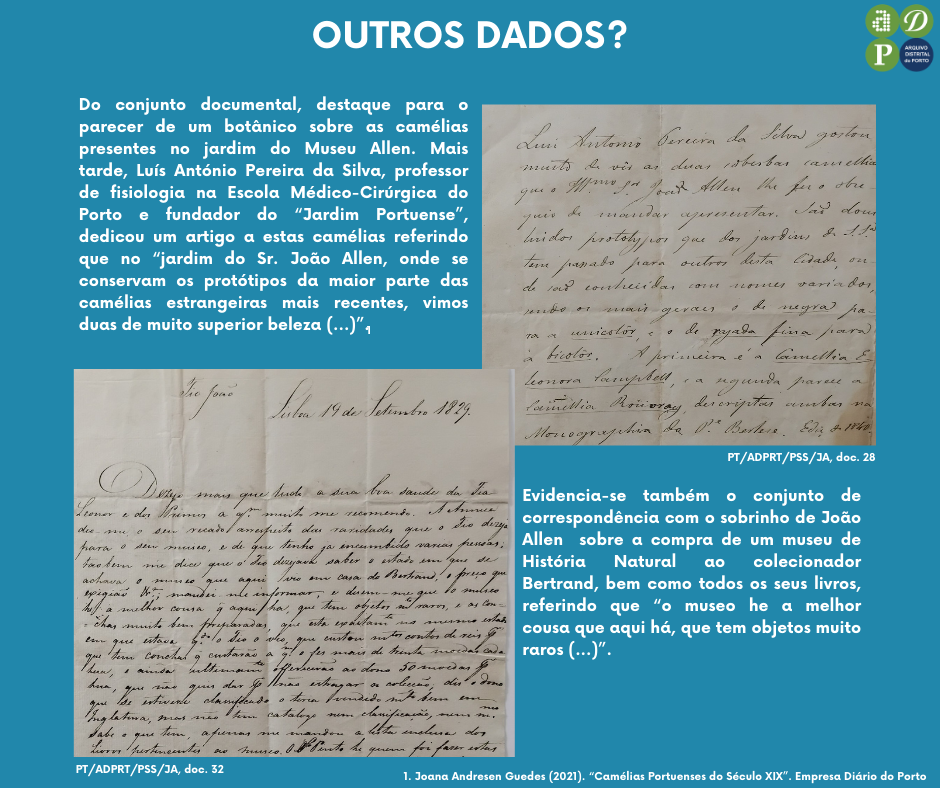 OUTROS DADOS?
a D P
ARQUIVO
DISTRITAL
do PORTO
Do conjunto documental, destaque para o
parecer de um botânico sobre as camélias
presentes no jardim do Museu Allen. Mais
tarde, Luís António Pereira da Silva, professor
de fisiologia na Escola Médico-Cirúrgica do
Porto e fundador do “Jardim Portuense”,
dedicou um artigo a estas camélias referindo
que no “jardim do Sr. João Allen, onde se
conservam os protótipos da maior parte das
camélias estrangeiras mais recentes, vimos
duas de muito superior beleza (...)”1
Luis Antonio Pereira da Silva gostou
muito de vêr as duas soberbas camellias
que o Illmo Sr. João Allen lhe fez o obse-
quio de mandar apresentar. São dous
lindos prototypos que dos jardins de S. Sa
tem passado para outros desta Cidade, on-
de saõ conhecidas com nomes variados,
sendo os mais geraes o de negral pa-
ra a unicolôr, e o de rajada fina para
a bicolôr. A primeira é a Camellia E-
leonora Campbell, e a segunda parece a
Camellia descriptas ambas na
Monographia do Pe. Berlese. Ediç. de 1840.
PT/ADPRT/PSS/JA, doc. 28
Tio João
Lisboa 19 de Setembro 1829.
Dezejo mais que tude a sua boa saude da Tia
Leonor e dos Primos a qm. muito me recomendo. A Annica
deo-me o seu recado a respeito das raridades que o Tio dezeja
para o seu museo, e de que tenho ja encumbido varias pessoas;
taõbem me dice que o Tio dezejava saber o estado em que se
achava o museo que aqui vio em casa do Bertrand, o preço que
exigiaõ &c.; mandei-me informar, e dicem-me que o museo
he a melhor cousa q aqui ha, que tem objetos mto raros, e as con-
chas muito bem preparadas, que esta exactamte no mesmo estado
em que estava qdo. o Tio o vio, que custou mtos contos de reis
que tem conchas q custaraõ a q. o fes mais de trinta moedas cada
huã, e ainda ultimamte offereceraõ ao dono 50 moedas
huã, que naõ quis dar naõ estragar a colecçaõ, dis o dono
que se estivesse clasificado o teria vendido mto bem em
Inglaterra, mas naõ tem catalogo nem clasificaçaõ, nem mmo
sabe o que tem, apenas me mandou a lista incluza dos
livros pertencentes ao museo. O Pinto he quem foi fazer estas
PT/ADPRT/PSS/JA, doc. 32
Evidencia-se também o conjunto de
correspondência com o sobrinho de João
Allen sobre a compra de um museu de
História Natural ao colecionador
Bertrand, bem como todos os seus livros,
referindo que “o museo he a melhor
cousa que aqui há, que tem objetos muito
raros (...)”.
1. Joana Andresen Guedes (2021). “Camélias Portuenses do Século XIX”. Empresa Diário do Porto